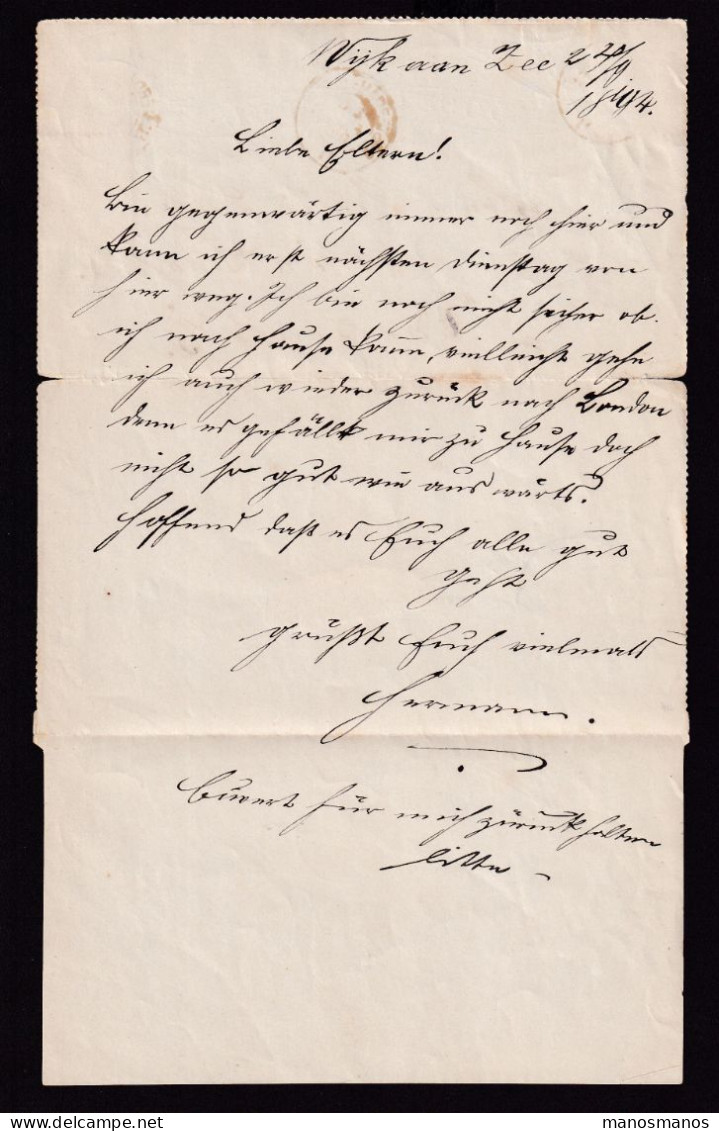 Wijk aan Zee
1894.
Liebe Eltern!
Bin gegenwärtig immer noch hier und
kann ich erst nächsten Dienstag von
hier weg. Ich bin noch nicht sicher ob
ich nach Hause kann, vielleicht gehe
ich auch wieder zurück nach London
denn es gefällt mir zu Hause doch
nicht so gut wie auswärts.
Hoffend daß es Euch alle gut
geht
grüßt Euch vielmals
Hermann.
für mich zurückhalten
bitte -
manosmanos